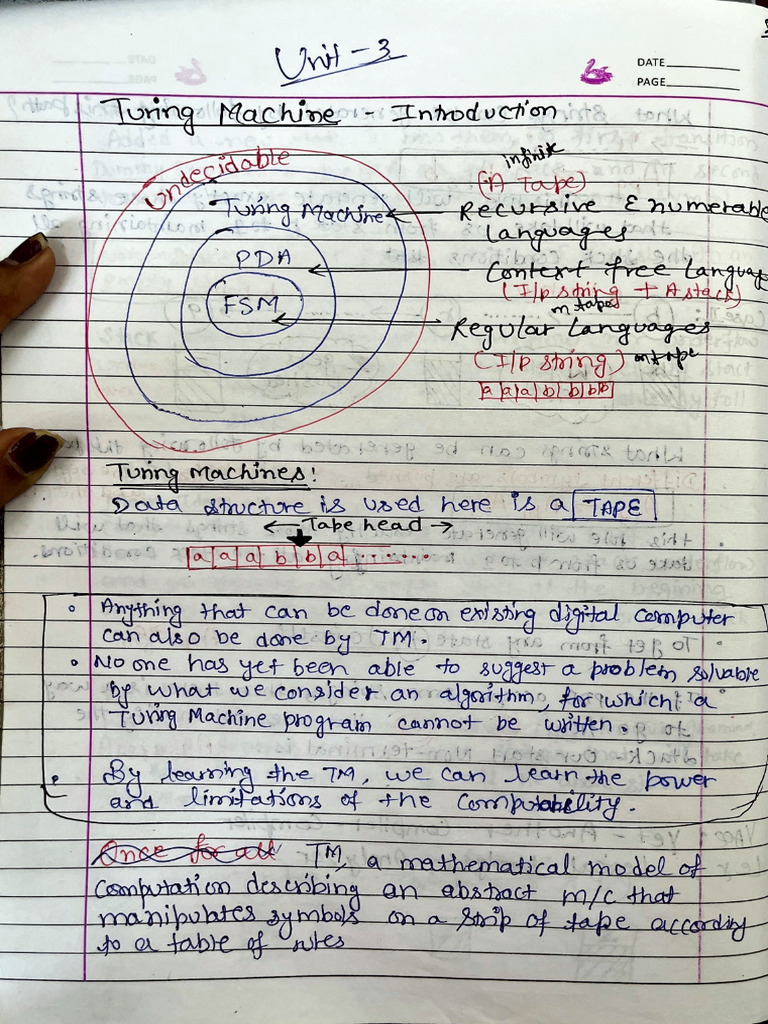 Unit - 3
DATE
PAGE
Turing Machine - Introduction
Undecidable
infinite
(A Tape)
Turing Machine
Recursive Enumerable
languages
PDA
Context free Languag
(I/p string + A stack)
FSM
m tape
Regular Languages
(I/p string)
a a a b b b b
Turing Machines!
Data structure is used here is a TAPE
Tape head
a a a b b a .......
• Anything that can be done on existing digital computer
can also be done by TM.
• No one has yet been able to suggest a problem solvable
by what we consider an algorithm, for which a
Turing Machine program cannot be written.
• By learning the TM, we can learn the power
and limitations of the Computability.
Once for all TM, a mathematical model of
Computation describing an abstract m/c that
manipulates symbols on a strip of tape according
to a table of rules